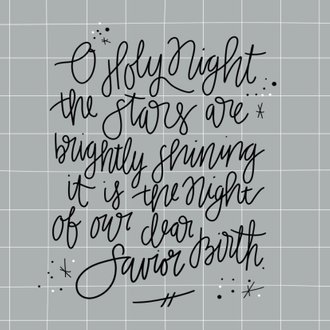 O Holy Night
the stars are
brightly shining
it is the Night
of our dear
Savior Birth.